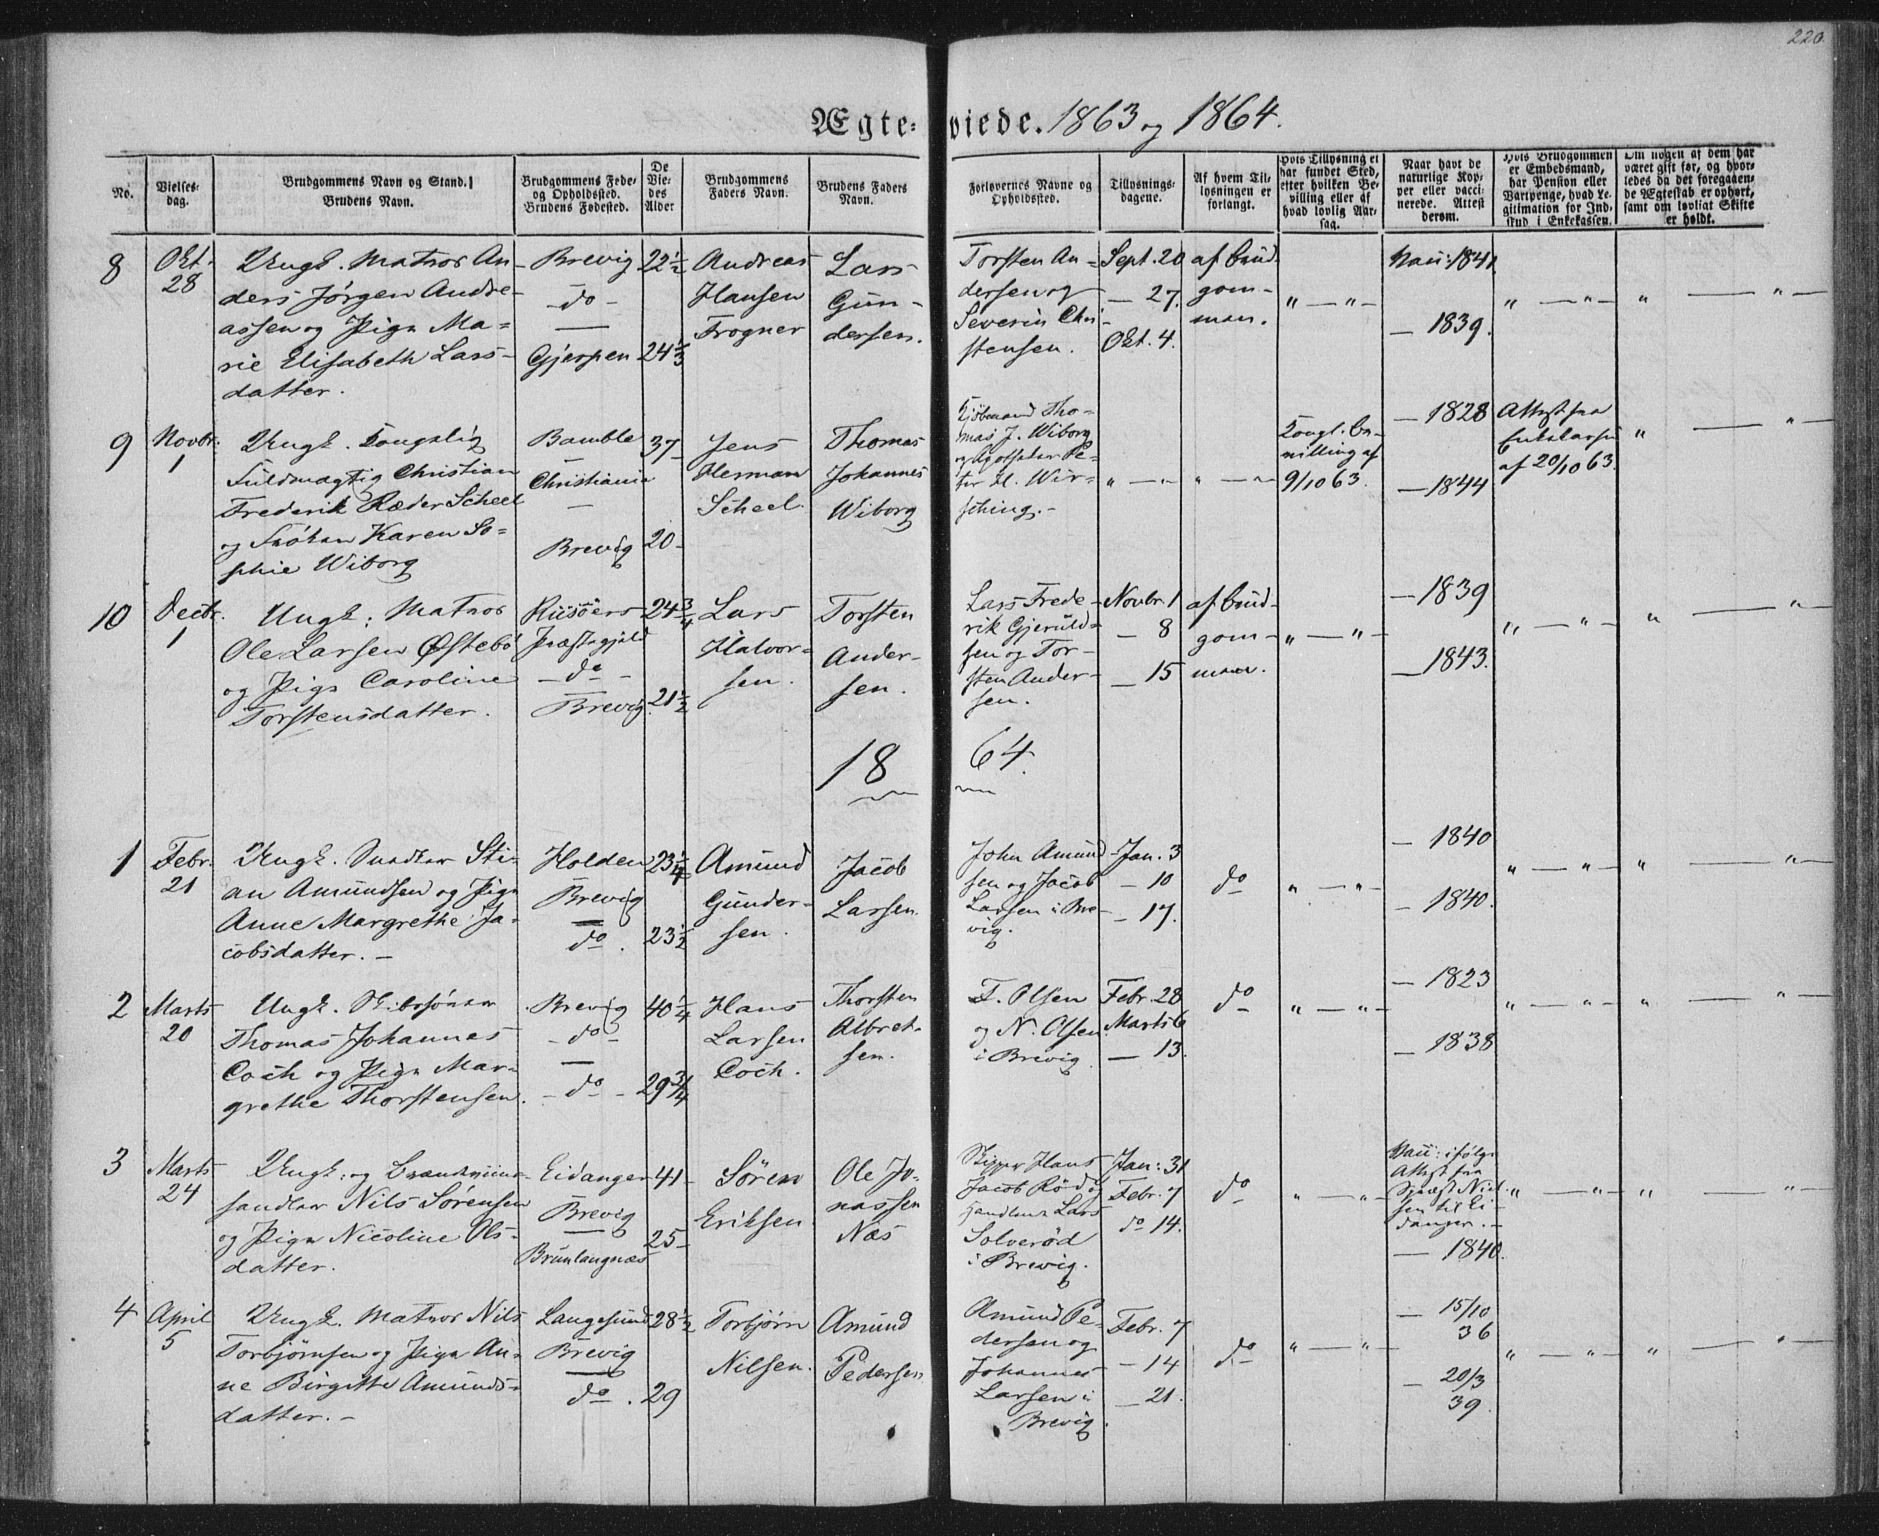 220.
Ægteviede. 1863 og 1864.
No.
Vielsesdag.
Brudgommens Navn og Stand.
Brudens Navn.
Brudgommens Føde-
og Opholdssted.
Brudens Fødested.
De
Vie-
des
Alder
Brudgommens
Faders Navn.
Brudens Faders
Navn.
Forlovernes Navne og
Opholdssted.
Tillysnings-
dagene.
Af hvem Til-
lysningen er
forlangt.
Hvis Tillysning ei
har fundet Sted,
efter hvilken Be-
villing eller af
hvad lovlig Aar-
sag.
Naar havt de
naturlige Kop-
per eller vacci-
nerede. Attest
derom.
Hvis Brudgommen
er Embedsmand,
har Pension eller
Vartpenge, hvad Le-
gitimation for Ind-
skud i Enkekassen.
Om nogen af dem har
været gift før, og hvor-
ledes da det foregaaen-
de Ægteskab er ophørt,
samt om lovligt Skifte
er holdt.
8
Okt.
28
Ungk. Matros An-
ders Jørgen Andre-
assen og Pige Ma-
rie Elisabeth Lars-
datter.
Brevig
do
Gjerpen
22½
24⅓
Andreas
Hansen
Frogner
Lars
Gun-
dersen.
Torsten An-
dersen og
Severin Chri-
stensen.
Sept. 20
— 27.
Okt. 4.
af brud-
gom-
men.
" — " —
Vacc: 1841
— 1839.
" — " —
" — " —
9
Novbr.
1
Ungk.
Fuldmægtig Christian
Frederik Ræder Scheel
og Frøken Karen So-
phie Wiborg
Bamble
Christiania
Brevig
37
20
Jens
Herman
Scheel
Thomas
Johannes
Wiborg
Kjøbmand Tho-
mas J. Wiborg
og Apotheker Pe-
ter H. Wir-
sching.
" — "
" — "
Kongl. be-
villing af
9/10 63.
— 1828
— 1844
Attest fra
Enkekassen
af 20/10 63.
" — " —
10
Decbr.
1
Ungk: Matros
Ole Larsen Østebø
og Pige Caroline
Torstensdatter.
Riisøers
Præstegjeld
do
Brevig
24¾
21½
Lars
Halvor-
sen.
Torsten
Ander-
sen.
Lars Frede-
rik Gjeruld-
sen og Tor-
sten Ander-
sen.
Novbr. 1
— 8
— 15
af brud-
gom-
men.
" — " —
— 1839
— 1843.
" — " —
" — "
1864.
1
Febr.
21
Ungk. Snedker Sti-
an Amundsen og Pige
Anne Margrethe Ja-
cobsdatter. —
Holden
Brevig
do.
23¼
23½
Amund
Gunder-
sen.
Jacob
Larsen
John Amund-
sen og Jacob
Larsen i Bre-
vig.
Jan. 3
— 10
— 17.
do
" — " —
— 1840
— 1840.
" — " —
" — " —
2
Marts
20
Ungk. Skibstømmer
Thomas Johannes
Coch og Pige Mar-
grethe Thorstensen.
Brevig
do
do
40¼
29¾
Hans
Larsen
Coch.
Thorsten
Albret-
sen.
T. Olsen
og N. Olsen
i Brevig
Febr. 28
Marts 6
— 13.
do
" — " —
— 1823
— 1838
" — " —
" — " —
3
Marts
24
Ungk: og
handler Nils Sørensen
og Pige Nicoline Ols-
datter.
Eidanger
Brevig
Brunlangnæs
41
25
Søren
Eriksen
Ole Jo-
nassen
Næs
Skipper Hans
Jacob Rød og
Handlende Lars
Solverød
i Brevig.
Jan: 31
Febr. 7
do 14.
do
" — " —
Vacc: ifølge
Attest fra
Præst Niel-
sen til Ei-
danger. —
— 1840.
" — " —
" — " —
4
April
5
Ungk. Matros Nils
Torbjørnsen og Pige An-
ne Birgitte Amunds-
datter. —
Langesund
Brevig
do.
28½
29
Torbjørn
Nilsen.
Amund
Pedersen
Amund Pe-
dersen og
Johannes
Larsen i
Brevig.
Febr. 7
— 14
— 21.
do
" — " —
— 15/10
36
— 20/3
39.
" — " —
" — " —